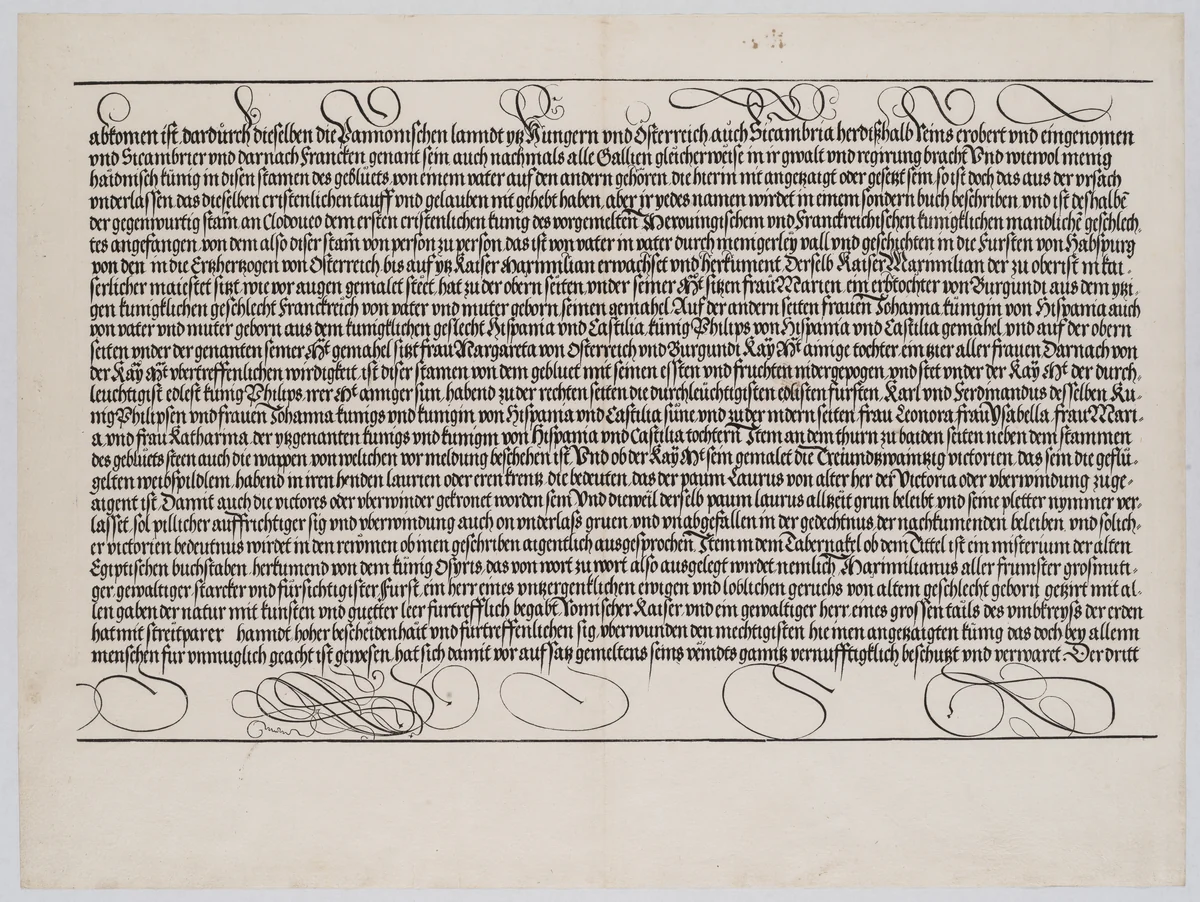 abkomen ist, dardurch dieselben die Pannonischen lanndt ytz Hungern vnd Österreich auch Sicambria herdißhalb Reins erobert vnd eingenomen
vnd Sicambrier vnd darnach Francken genant sein, auch nachmals alle Gallien gleicherweise in ir gwalt vnd regirung bracht Vnd wiewol menig
haidnisch künig in disen stamen des geblüets, von einem vater auf den andern gehören, die hierin mit angetzaigt oder gesetzt sein, so ist doch das aus der vrsach
vnderlassen, das dieselben cristenlichen tauff vnd gelauben nit gehebt haben, aber ir yedes namen wirdet in einem sondern buch beschriben, vnd ist deshalbē
der gegenwurtig stam̄ an Clodoueo dem ersten cristenlichen kunig des vorgemelten Merouingischem vnd Franckreichischen kunigklichen mandlichē geschlech,
tes angefangen, von dem also diser stam̄ von person zu person, das ist von vater in vater durch menigerley vall vnd geschichten in die Fursten von Habspurg
von den in die Ertzhertzogen von Österreich, bis auf ytz Kaiser Maximilian erwachset vnd herkument, Derselb Kaiser Maximilian der zu oberist in kai-
serlicher maiestet sitzt, wie vor augen gemalet steet, hat zu der obern seiten, vnder seiner Mt sitzen frau Marien, ein erbtochter von Burgundi aus dem ytzi-
gen kunigklichen geschlecht Franckreich von vater vnd muter geborn, seinen gemahel Auf der andern seiten frauen Johanna künigin von Hispania auch
von vater vnd muter geborn aus dem kunigklichen geslecht Hispania vnd Castilia, künig Philips von Hispania vnd Castilia gemahel, vnd auf der obern
seiten vnder der genanten seiner Mt gemahel sitzt frau Margareta von Osterreich vnd Burgundi Kay Mt ainige tochter, ein tzier aller frauen, Darnach von
der Kay Mt vbertreffenlichen wirdigkeit, ist diser stamen von dem gebluet mit seinen essten vnd fruchten nidergepogen, vnd stet vnder der Kay Mt der durch,
leuchtigist edlest kunig Philips, irer Mt ainiger sun, habend zu der rechten seiten die durchleüchtigisten edlisten fürsten, Karl vnd Ferdinandus desselben Ku-
nig Philipsen vnd frauen Johanna kunigs vnd kunigin von Hispania vnd Castilia süne, vnd zu der nidern seiten, frau Leonora frau Ysabella, frau Mari-
a, vnd frau Katharina, der ytzgenanten kunigs vnd kunigin von Hispania vnd Castilia tochtern Item an dem thurn zu baiden seiten neben dem stammen
des geblüets steen auch die wappen, von welichen vor meldung beschehen ist, Vnd ob der Kay Mt sein gemalet die Treiundtzwaintzig victorien, das sein die geflü-
gelten weibspildlem, habend in iren henden laurien oder eren krentz, die bedeuten, das der paum Laurus von alter her der Victoria oder vberwindung zuge-
aigent ist, Damit auch die victores oder vberwinder gekronet worden sein Vnd dieweil derselb paum laurus alltzeit grun beleibt vnd seine pletter nymmer ver-
lasset, sol pillicher auffrichtiger sig vnd vberwindung auch on vnderlass gruen, vnd vnabgefallen in der gedechtnus der nachkumenden beleiben, vnd solich-
er victorien bedeutnus wirdet in den reiomen ob inen geschriben aigentlich ausgesprochen, Item in dem Tabernakel ob dem Tittel ist ein misterium der alten
Egiptischen buchstaben, herkumend von dem künig Osyris, das von wort zu wort also ausgelegt wirdet, nemlich, Maximilianus aller frumster grosmuti-
ger, gewaltiger, starcker vnd fürsichtigister Furst, ein herr eines vntzergenklichen ewigen vnd loblichen geruchs von altem geschlecht geborn, getzirt mit al-
len gaben der natur mit kunsten vnd guetter leer furtrefflich begabt Romischer Kaiser, vnd ein gewaltiger herr eines grossen tails des vmbkreyss der erden
hat mit streitparer hanndt, hoher bescheidenhait vnd fürtreffenlichen sig, vberwunden den mechtigisten, hie inen angetzaigten künig das doch bey allenn
menschen fur vnmuglich geacht ist gewesen, hat sich damit vor aufsatz gemeltens seins veindts gantz vernufftigklich beschutzt vnd verwaret. Der dritt